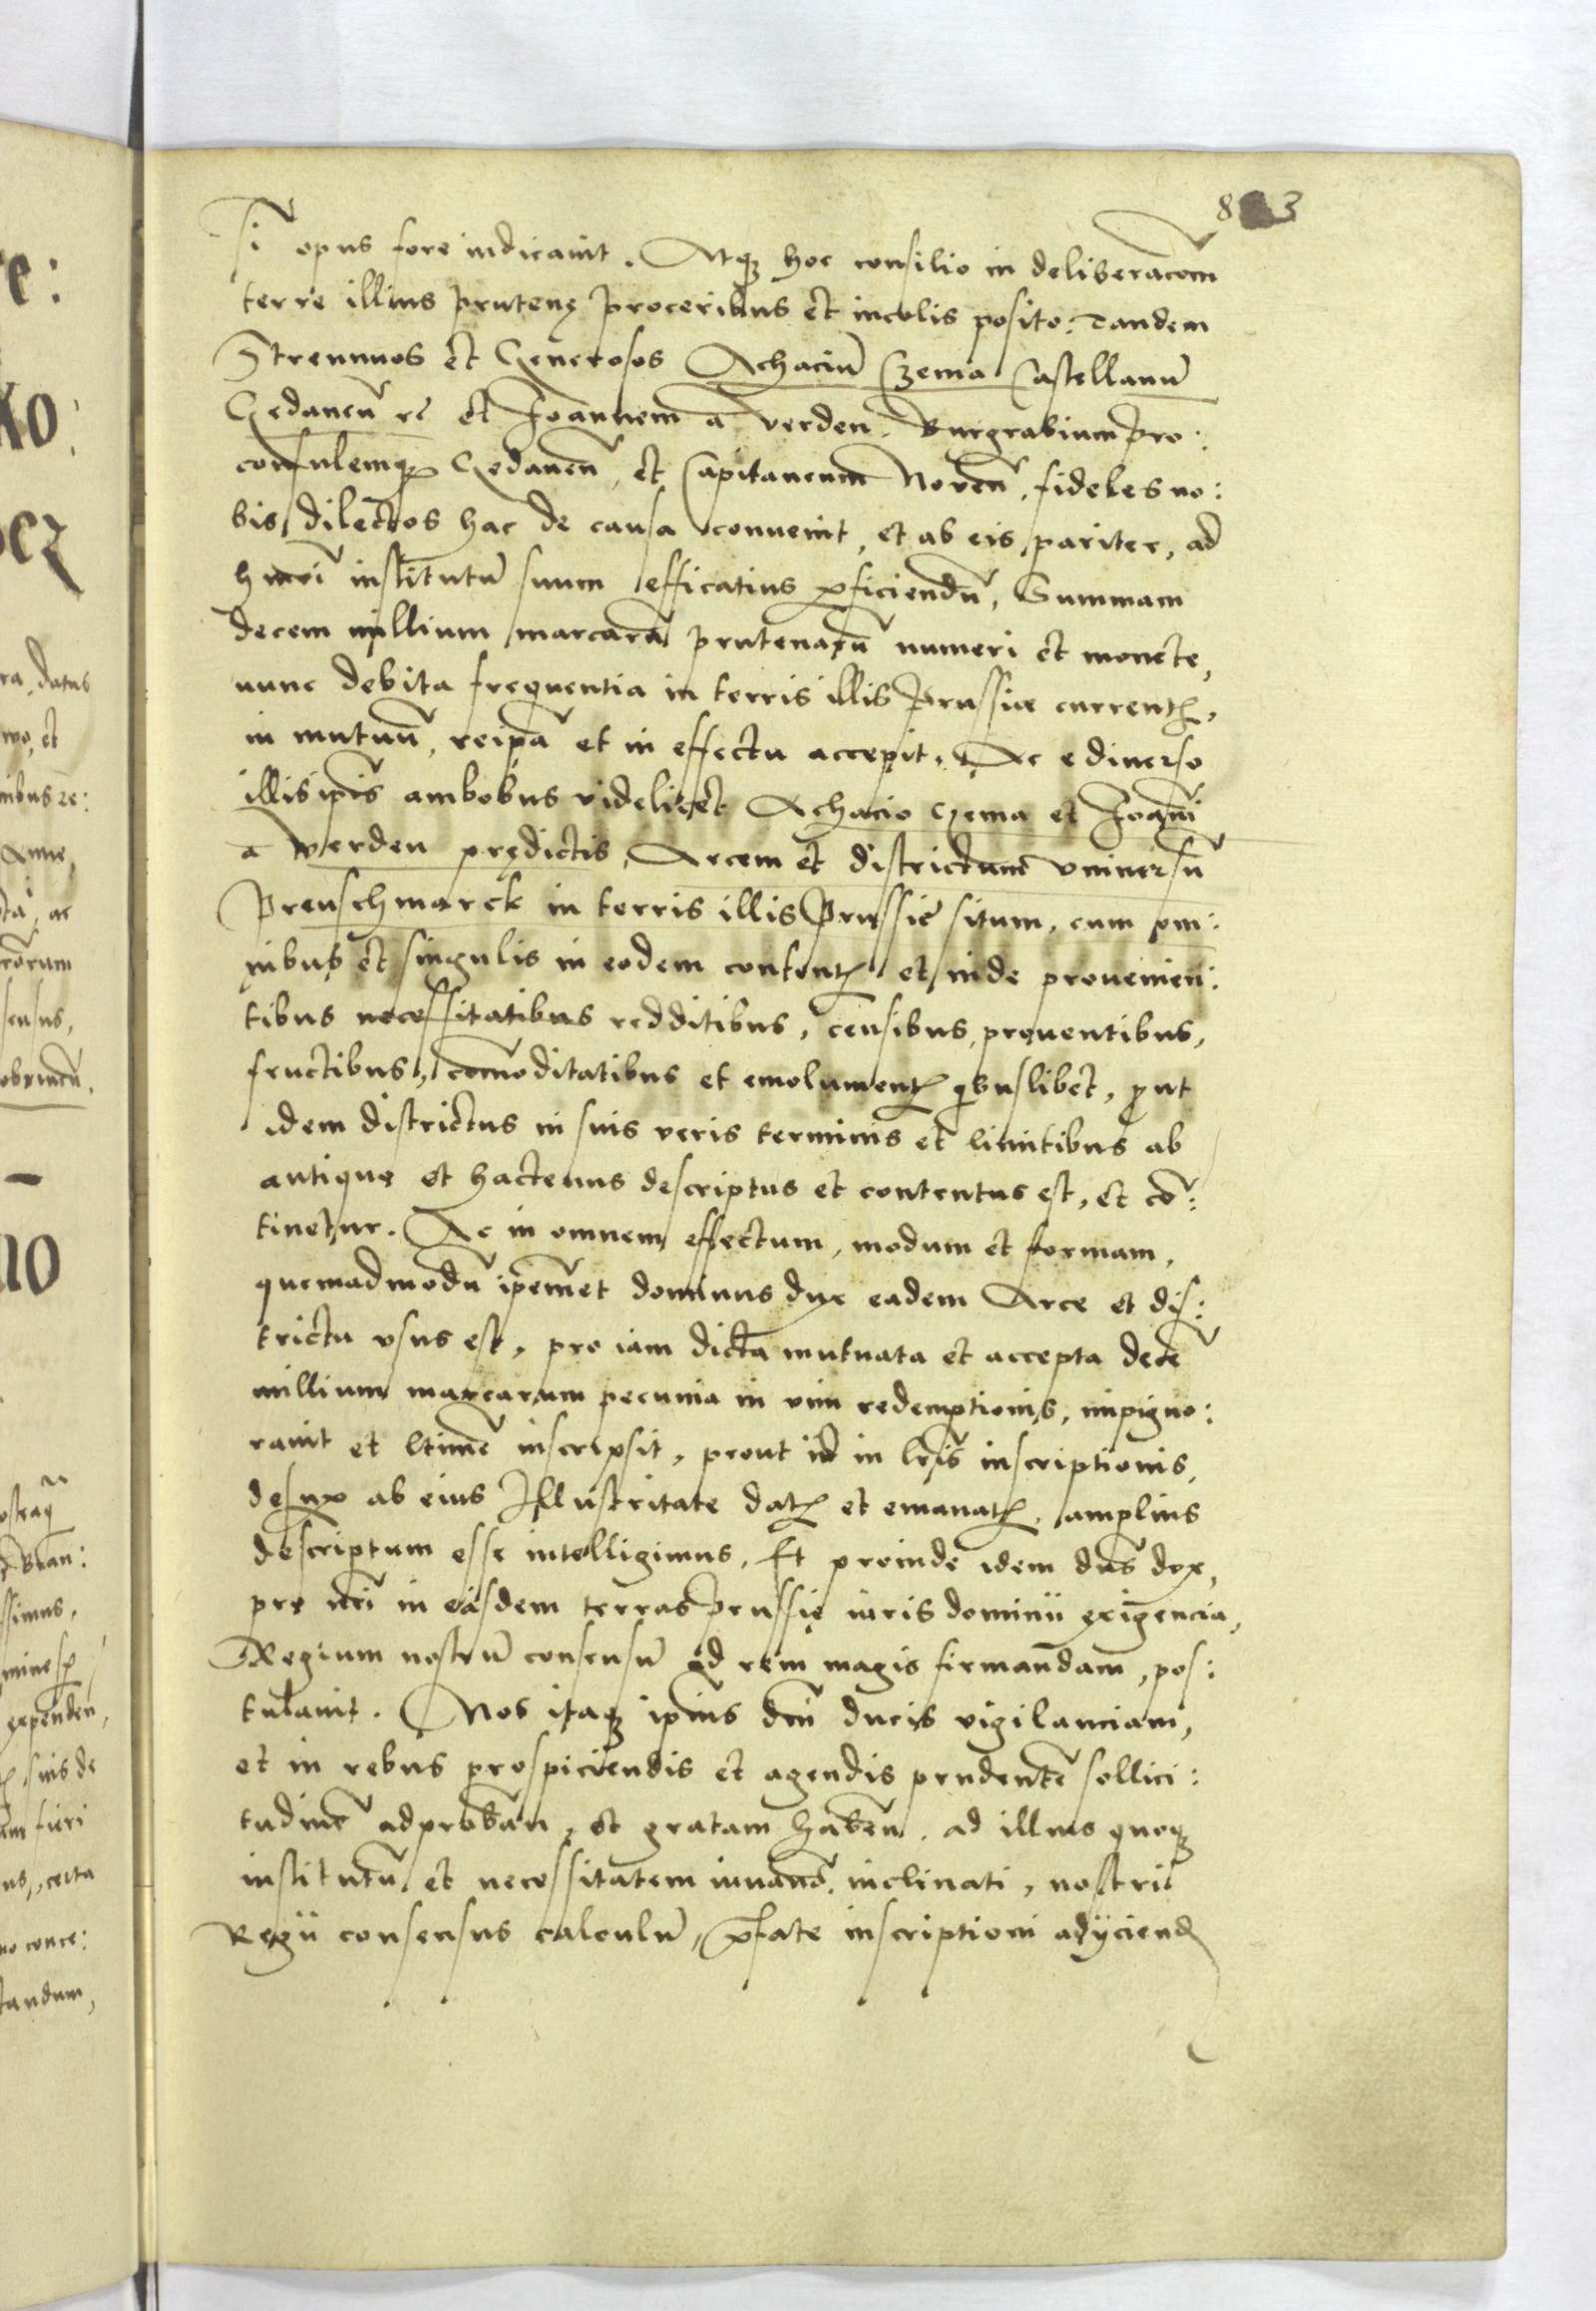 8 3
si opus fore iudicauit. Atq3 hoc consilio in deliberacom̃
terre illius prutenę proceribus et incolis posito: Tandem
Strennuos et Generosos Achaciũ Czema Castellanũ
Gedaneñ re et Joannem a Verden. Burgrabium pro:
consulemq3 Gedaneñ, et Capitaneum Noveñ, fideles no:
bis dilectos hac de causa conuenit, et ab eis pariter, ad
hm̃oi institutũ suum efficatius ꝑficiendũ, Summam
decem millium marcarũ prutenarũ numeri et monete,
nunc debita frequentia in terris illis Prussiæ currentꝭ,
in mutuũ, reip̃a et in effectu accepit. Ac e diuerso
illis ip̃is ambobus videlicet Achacio Czema et Joañi
a Verden prędictis, Arcem et districtum vniuersũ
Preuschmarck in terris illis Prussię situm, cum om:
nibus et singulis in eodem contentꝭ et inde prouenien:
tibus necessitatibus redditibus, censibus, prouentibus,
fructibus, com̃oditatibus et emolumentꝭ qbuslibet, ꝓut
idem districtus in suis veris terminis et limitibus ab
antiquo et hactenus descriptus et contentus est, et cõ:
tinetur. Ac in omnem effectum, modum et formam,
quemadmodũ ip̃emet dominus dux eadem Arce et dis:
trictu vsus est, pro iam dicta mutuata et accepta decẽ
millium marcarum pecunia in vim redemptionis, impigno:
rauit et l̃time inscripsit, prout id in l̃ris inscriptionis,
desup ab eius Illustritate datꝭ et emanatꝭ, amplius
descriptum esse intelligimus. Et proinde idem dñs dux,
pro nr̃i in easdem terras Prussię iuris dominii exigencia,
Regium nostrũ consensũ ad rem magis firmandam, pos:
tulauit. Nos itaq3 ip̃ius dñi ducis vigilanciam,
et in rebus prospiciendis et agendis prudentẽ sollici:
tudinẽ adprobañ, et gratam habeñ, ad illius quoq3
institutũ et necessitatem iuuand̃, inclinati, nostri
Regii consensus calculũ, p̃fate inscriptioni adijciend